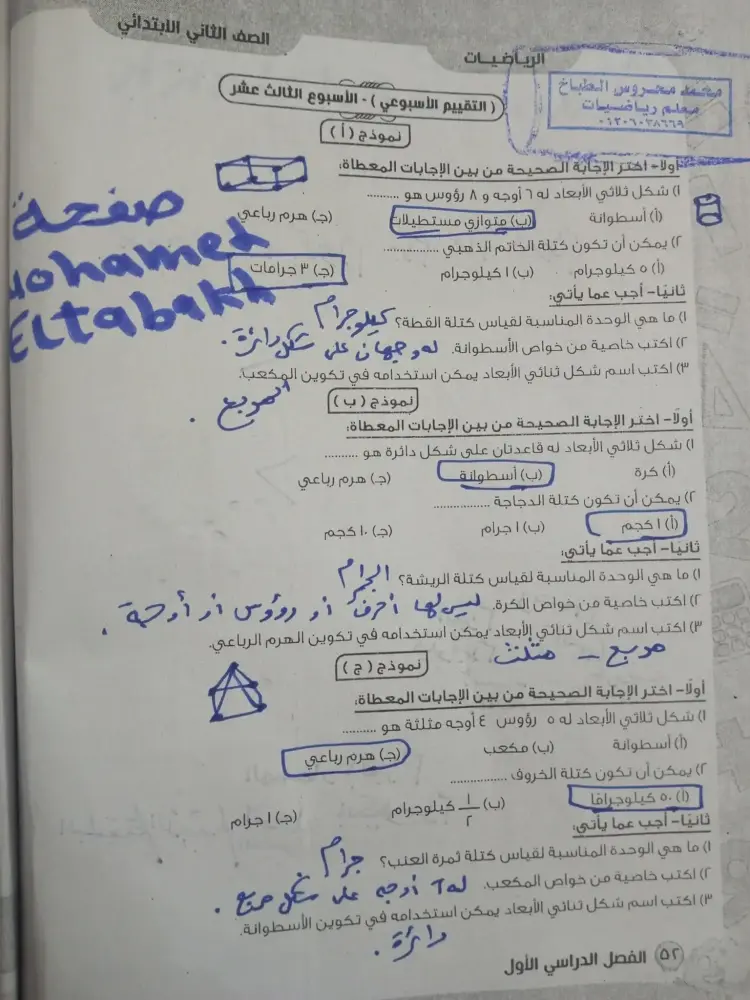 الصف الثاني الابتدائي
الرياضيات
محمد محروس الطباخ
معلم رياضيات
٠١٢٠٦٠٣٨٦٦٩
( التقييم الأسبوعي ) - الأسبوع الثالث عشر
نموذج ( أ )
أولًا- اختر الإجابة الصحيحة من بين الإجابات المعطاة:
١) شكل ثلاثي الأبعاد له ٦ أوجه و ٨ رؤوس هو ..........
(أ) أسطوانة (ب) متوازي مستطيلات (جـ) هرم رباعي
٢) يمكن أن تكون كتلة الخاتم الذهبي ................
(أ) ٥ كيلوجرام (ب) ١ كيلوجرام (جـ) ٣ جرامات
صفحة
Mohamed
Eltabakh
ثانيًا- أجب عما يأتي:
١) ما هي الوحدة المناسبة لقياس كتلة القطة؟ كيلوجرام
٢) اكتب خاصية من خواص الأسطوانة. له وجهان على شكل دائرة.
٣) اكتب اسم شكل ثنائي الأبعاد يمكن استخدامه في تكوين المكعب.
المربع .
نموذج ( ب )
أولًا- اختر الإجابة الصحيحة من بين الإجابات المعطاة:
١) شكل ثلاثي الأبعاد له قاعدتان على شكل دائرة هو ..........
(أ) كرة (ب) أسطوانة (جـ) هرم رباعي
٢) يمكن أن تكون كتلة الدجاجة ...............
(أ) ١ كجم (ب) ١ جرام (جـ) ١٠ كجم
ثانيًا- أجب عما يأتي:
١) ما هي الوحدة المناسبة لقياس كتلة الريشة؟ الجرام
٢) اكتب خاصية من خواص الكرة. ليس لها أحرف أو رؤوس أو أوجه .
٣) اكتب اسم شكل ثنائي الأبعاد يمكن استخدامه في تكوين الهرم الرباعي.
مربع - مثلث
نموذج ( ج )
أولًا- اختر الإجابة الصحيحة من بين الإجابات المعطاة:
١) شكل ثلاثي الأبعاد له ٥ رؤوس ٤ أوجه مثلثة هو ..........
(أ) أسطوانة (ب) مكعب (جـ) هرم رباعي
٢) يمكن أن تكون كتلة الخروف ...............
(أ) ٥٠ كيلوجرامًا (ب) ١/٢ كيلوجرام (جـ) ١ جرام
ثانيًا- أجب عما يأتي:
١) ما هي الوحدة المناسبة لقياس كتلة ثمرة العنب؟ جرام
٢) اكتب خاصية من خواص المكعب. له ٦ أوجه على شكل مربع .
٣) اكتب اسم شكل ثنائي الأبعاد يمكن استخدامه في تكوين الأسطوانة.
دائرة .
٥٢ الفصل الدراسي الأول